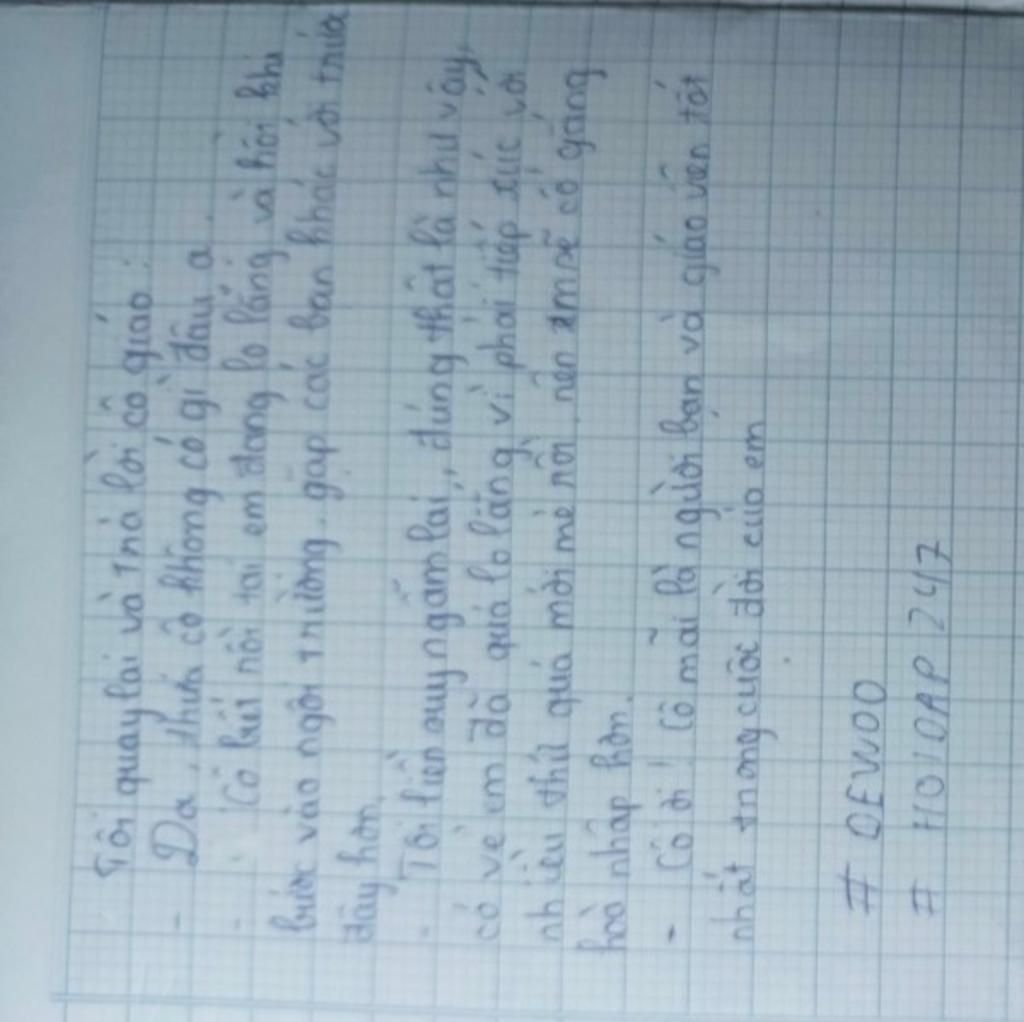 Tôi quay lại và trả lời cô giáo:
- Dạ, thưa cô không có gì đâu ạ.
- Cô biết rồi tại em đang lo lắng và hồi khi
bước vào ngôi trường. gặp các bạn khác với trước
đây hơn.
- Tôi liền suy ngẫm lại, đúng thật là như vậy,
có vẻ em đã quá lo lắng vì phải tiếp xúc với
nhiều thứ quá mới mẻ rồi, nên em sẽ cố gắng
hoà nhập hơn.
- Cô ơi! Cô mãi là người bạn và giáo viên tốt
nhất trong cuộc đời của em
# OEWOO
# HOIOAP 247